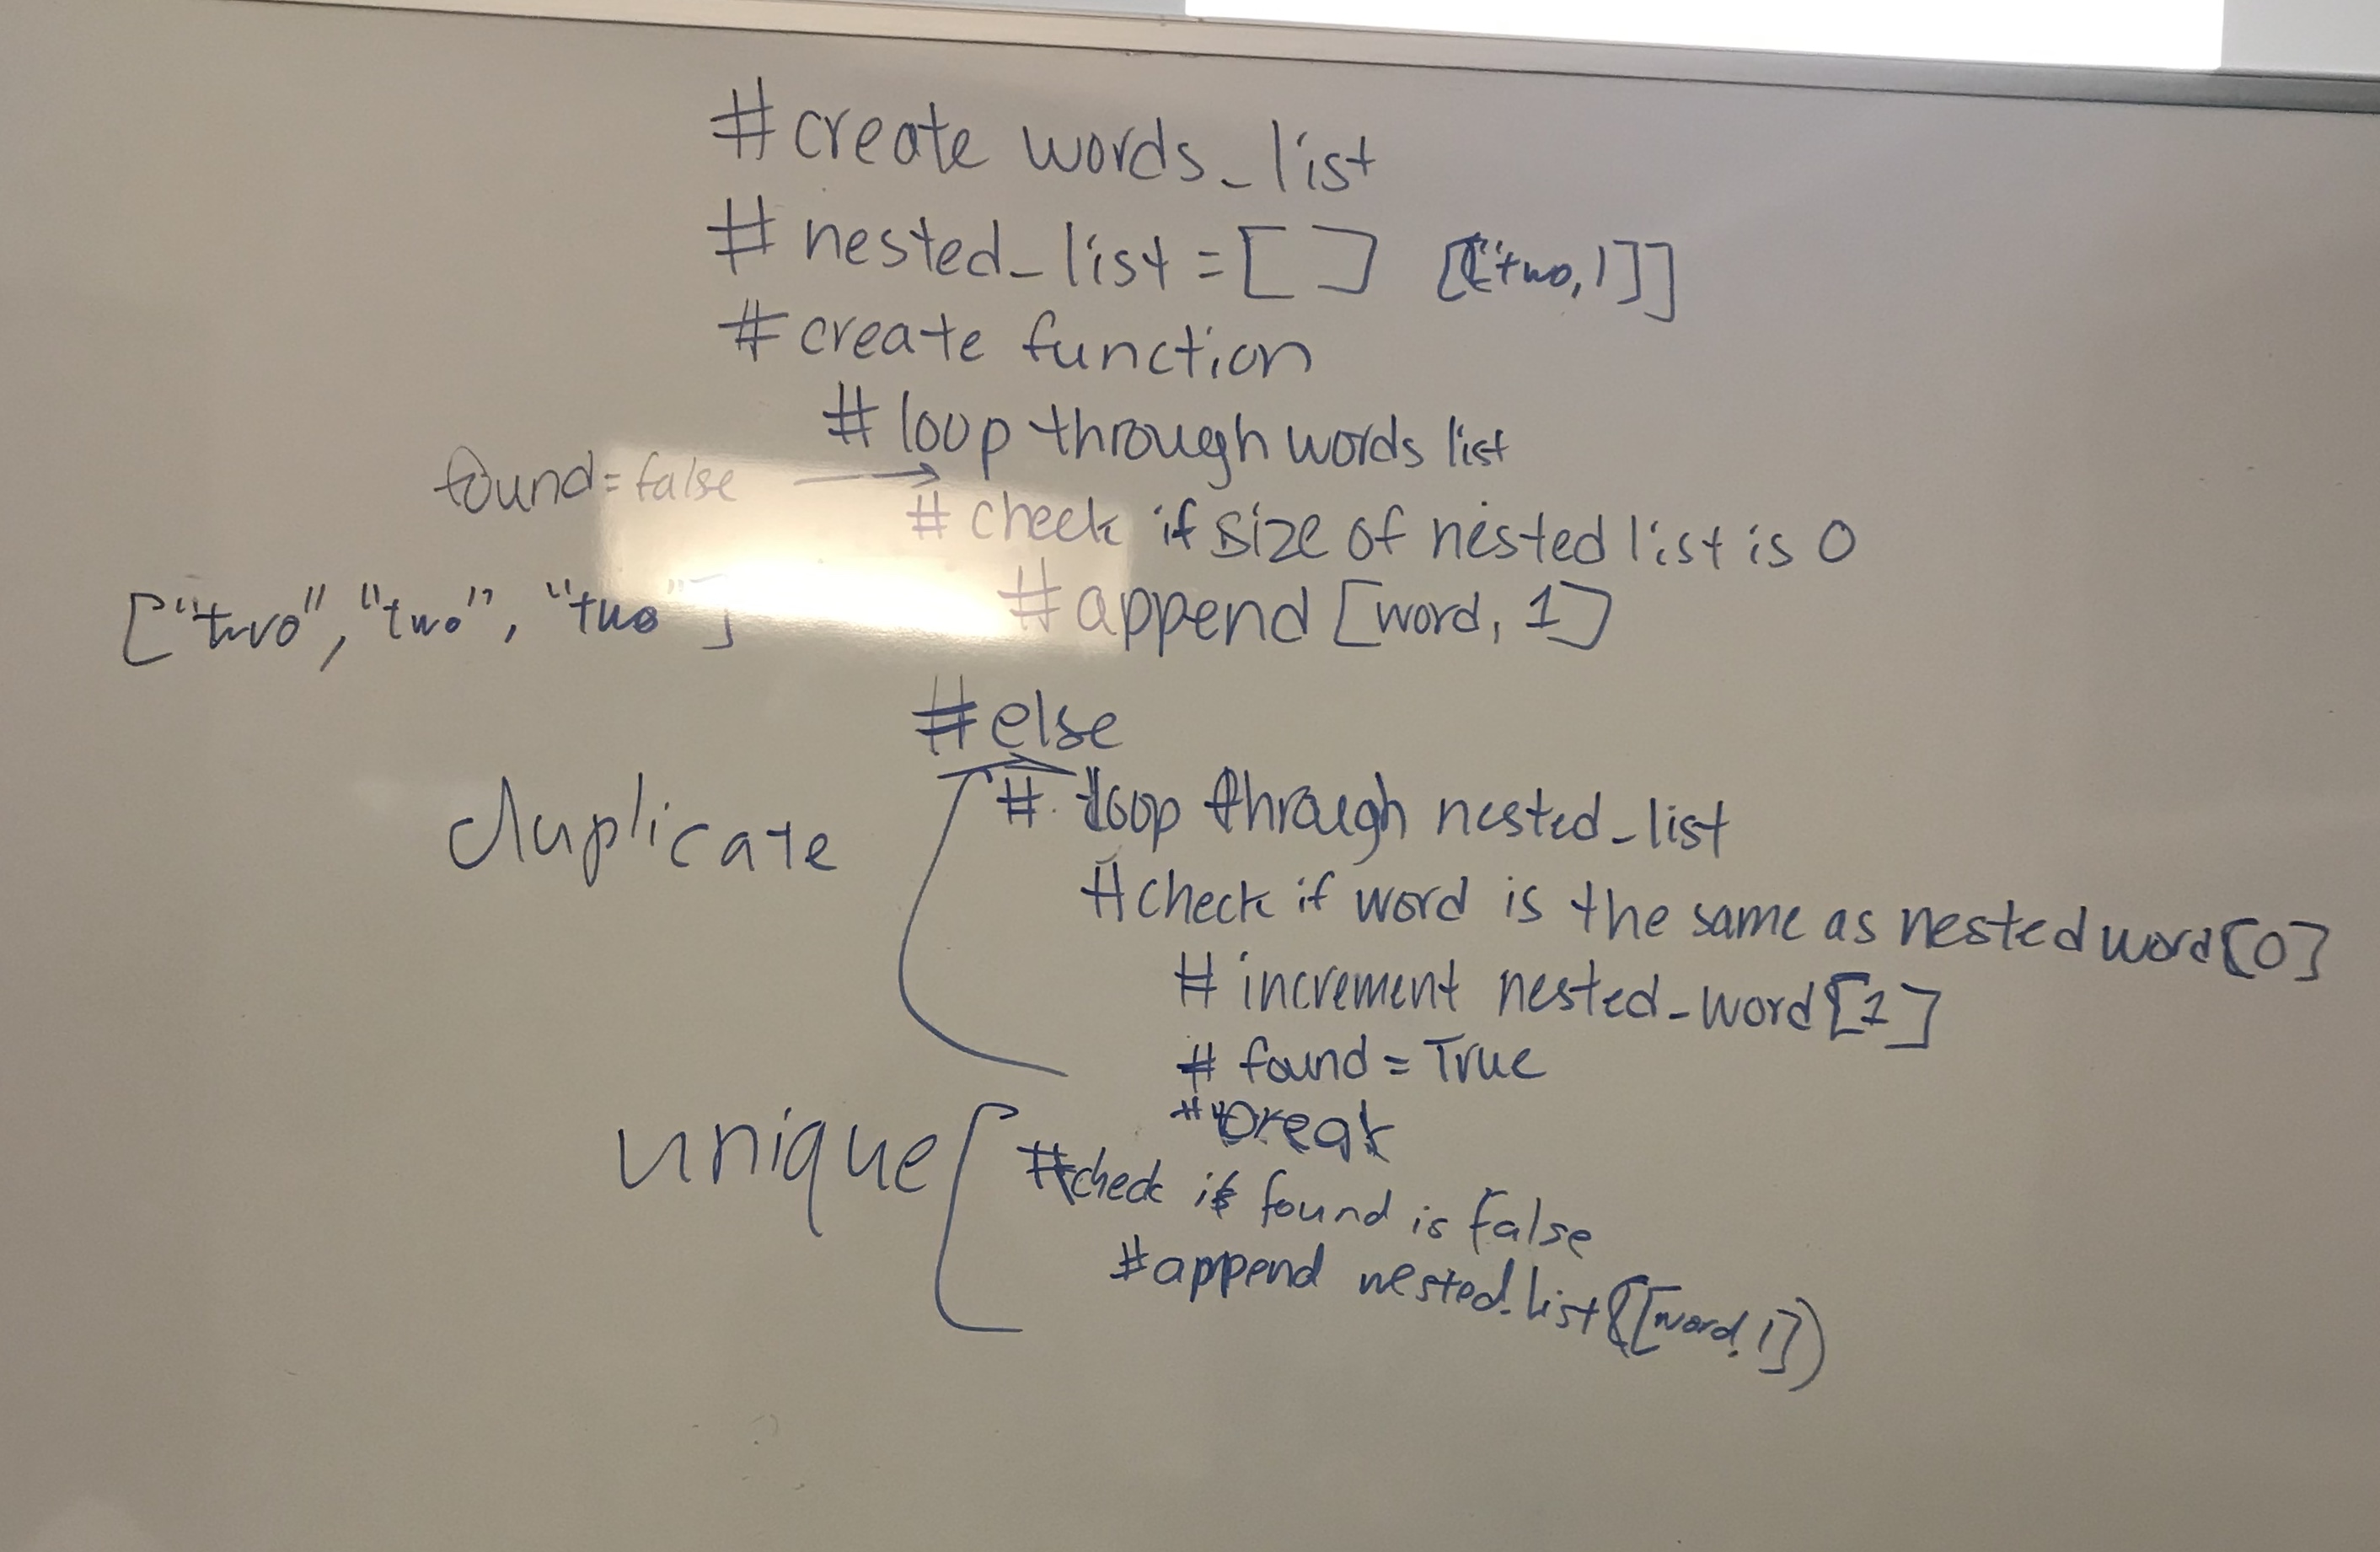 #create words_list
# nested_list = [ ] [["two, 1]]
#create function
# loop through words list
found = false →
# check if size of nested list is 0
["two", "two", "two"]
#append [word, 1]
#else
duplicate
# loop through nested_list
#check if word is the same as nested word[0]
# increment nested_word[1]
# found = True
#break
unique
#check if found is false
#append nested_list([word, 1])